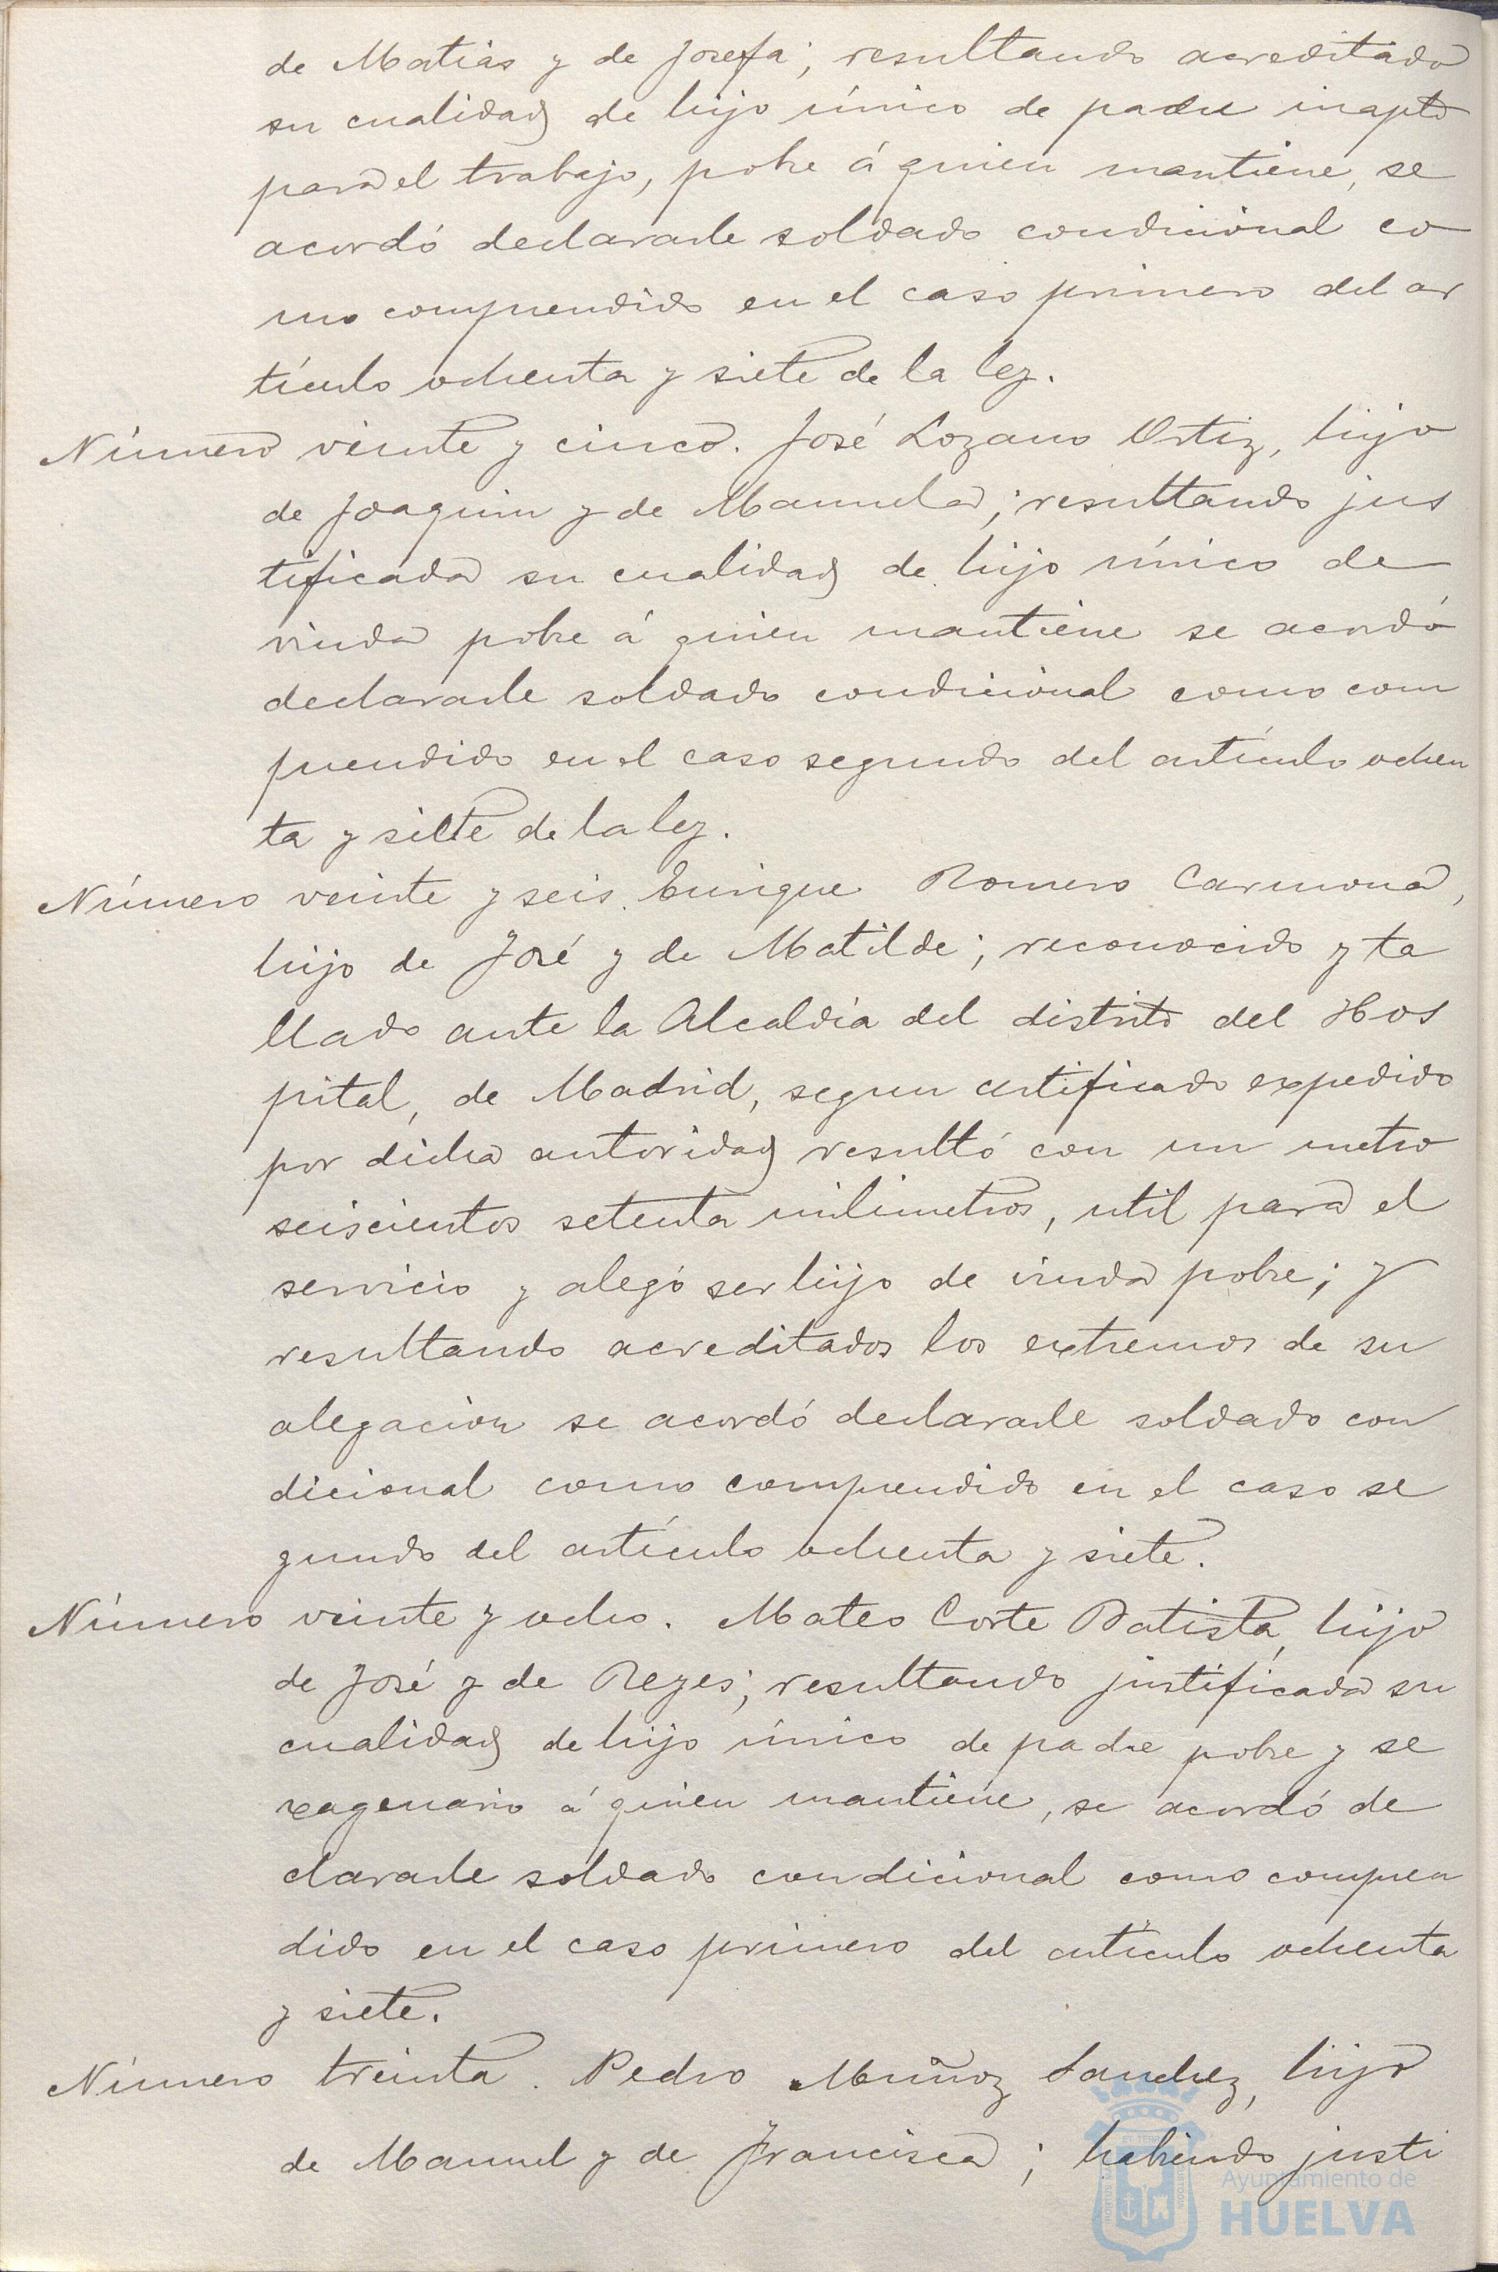 de Matias y de Josefa; resultando acreditado
su cualidad de hijo único de padre inapto
para el trabajo, pobre á quien mantiene, se
acordó declararle soldado condicional co
mo comprendido en el caso primero del ar
tículo ochenta y siete de la ley.
Número veinte y cinco. José Lozano Ortiz, hijo
de Joaquin y de Manuela; resultando jus
tificada su cualidad de hijo único de
viuda pobre á quien mantiene se acordó
declararle soldado condicional como com
prendido en el caso segundo del artículo ochen
ta y siete de la ley.
Número veinte y seis. Enrique Romero Carmona,
hijo de José y de Matilde; reconocido y ta
llado ante la Alcaldía del distrito del Hos
pital, de Madrid, segun certificado expedido
por dicha autoridad resultó con un metro
seiscientos setenta milimetros, util para el
servicio y alegó ser hijo de viuda pobre; y
resultando acreditados los extremos de su
alegacion se acordó declararle soldado con
dicional como comprendido en el caso se
gundo del artículo ochenta y siete.
Número veinte y ocho. Mateo Corte Batista, hijo
de José y de Reyes; resultando justificada su
cualidad de hijo único de padre pobre y se
xagenario á quien mantiene, se acordó de
clararle soldado condicional como compren
dido en el caso primero del artículo ochenta
y siete.
Número treinta. Pedro Muñoz Sanchez, hijo
de Manuel y de Francisca; habiendo justi
Ayuntamiento de
HUELVA